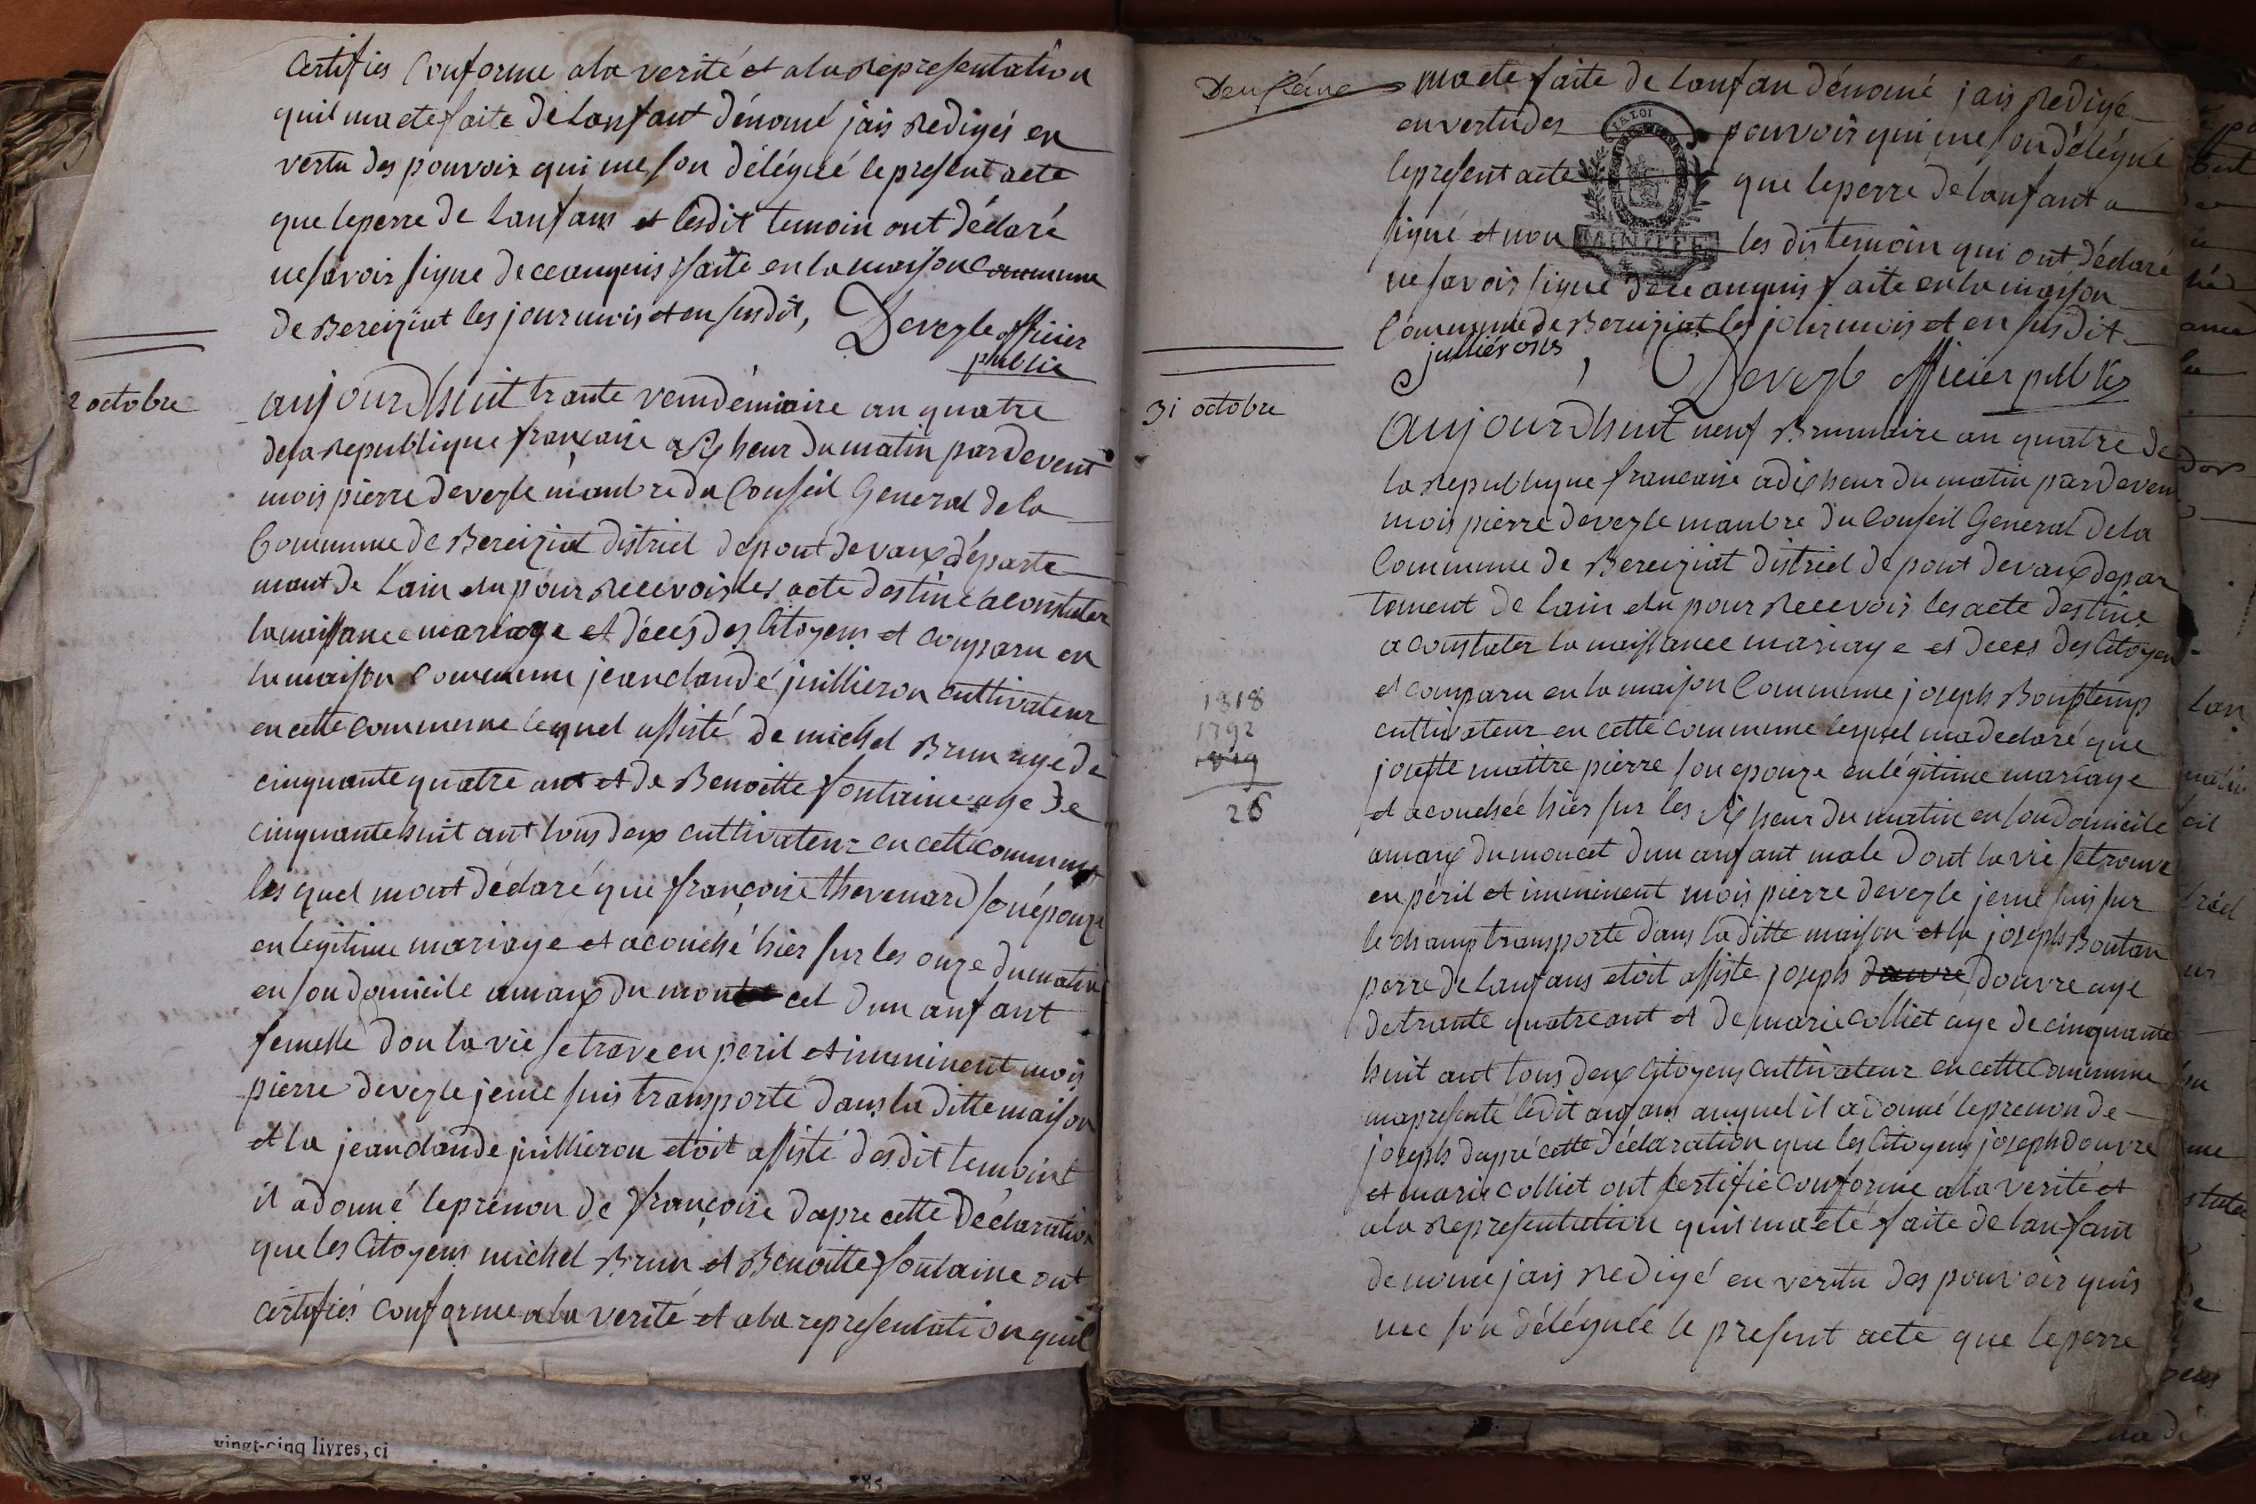 Certifies Conforme ala verité et ala Representation
quil ma eté faite de Lanfant dénomé jais Redigés en
vertu des pouvoir qui me son délégué le present acte
que leperre de Lanfans et lesdit temoin ont déclaré
ne savoir signe de ce anquis faite en la maison Commune
de Bereiziat les jour mois et an susdit,
Devezle officier
public
2 octobre
aujourdhuit trante vendémiaire an quatre
dela Republique française a dix heur du matin pardevent
mois pierre devezle manbre du Conseil General de la
Commune de Bereiziat district depont de vaux départe
mant de Lain elu pour Recevoir les acte destiné aconstater
la naissance mariage et décés des Citoyens et comparu en
la maison Commune jean claude juillieron cultivateur
en cette commune lequel assisté de michel Brun agé de
cinquante quatre ant et de Benoitte fontaine age de
cinquante huit ant tous deux cultivateur en cette commune
les quel mont déclaré que françoise thevenard son épouze
en legitime mariage et acouché hier sur les onze du matin
en son domicile amaux du mon cel dun anfant
femelle don la vie se trave en peril et imminent mois
pierre devezle jeme suis transporté dans la ditte maison
et la jean claude juillieron etoit assisté desdit temoint
il adonné leprenon de françoise dapre cette déclaration
que les Citoyens michel Brun et Benoitte fontaine ont
certifiés conforme ala verité et ala representation quil
vingt-cinq livres, ci
ma ete faite de Lanfan dénomé jais Redigé
en vertu des pouvoir qui me son délégué
LA LOI
lepresent acte que leperre de lanfant a
signé et non les dis temoin qui ont déclaré
ne savoir signe de ce anquis faite en la maison
Commune de Bereiziat les jour mois et en susdit
juilliérons
Devezle officier public
31 octobre
aujourdhuit neuf Brumaire an quatre de
la Republique francaise adix heur du matin pardeven
mois pierre devezle manbre du Conseil General dela
Commune de Bereiziat district de pont devaux depar
tement de Lain elu pour Recevoir les acte destine
a constater la naissance mariage et deces des Citoyen
et comparu en la maison Commune joseph Bonptemp
1818
cultivateur en cette commune lequel ma declaré que
1792
josette maitre pierre son epouze en légitime mariage
26
et acouchée hier sur les dix heur du matin en son domicile
amaux du moncet dun anfant male dont la vie se trouve
en péril et imminent mois pierre devezle jeme suis sur
le champ transporte dans la ditte maison et la joseph Bontan
perre de Lanfans etoit assiste joseph douvre age
de trante quatre ant et de marie colliet age de cinquante
huit ant tous deux Citoyens cultivateur en cette Commune
ma presenté ledit anfans auquel il a donné leprenon de
joseph dapré cette déclaration que les Citoyens joseph douvre
et marie colliet ont certifie conforme ala verité et
ala Representation quil ma eté faite de lanfant
denomé jais Redigé en vertu des pouvoir quis
me son déléguée le present acte que leperre